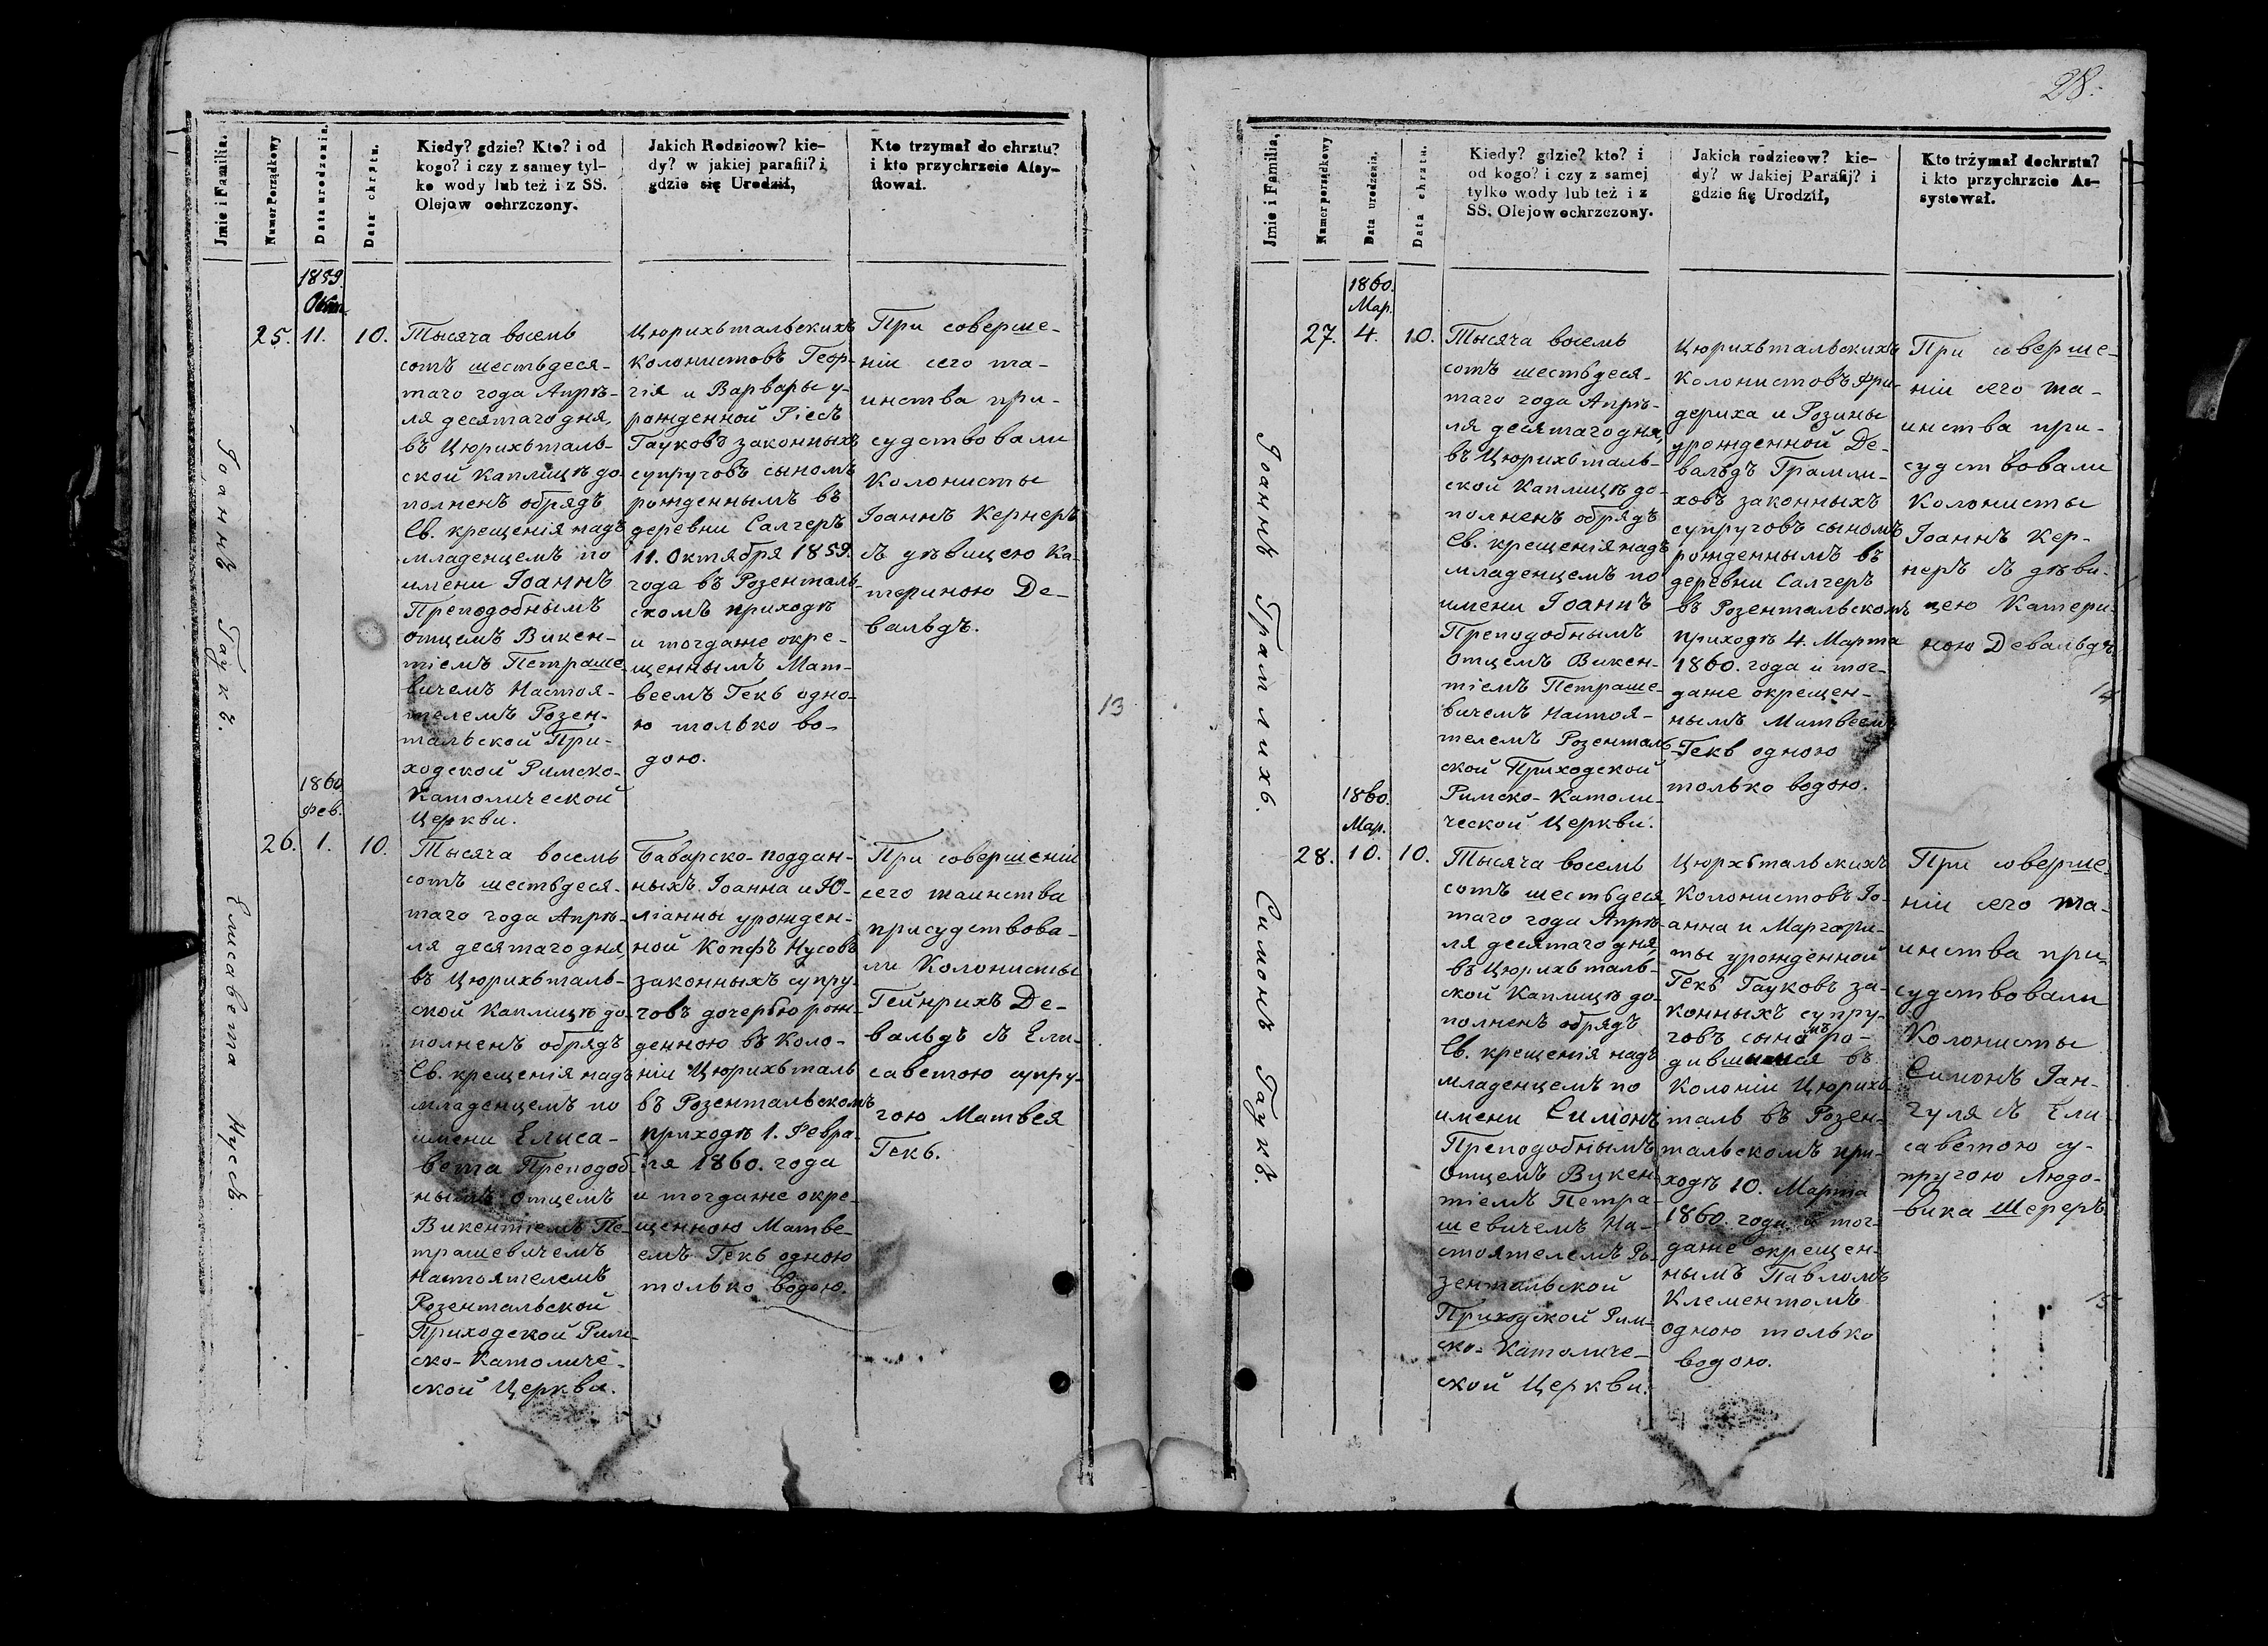 28.
Jmie i Familia.
Numer Porządkowy
Data urodzenia.
Data chrztu.
Kiedy? gdzie? Kto? i od
kogo? i czy z samey tyl-
ko wody lub też i z SS.
Olejow ochrzczony.
Jakich Rodzicow? kie-
dy? w jakiej parafii? i
gdzie się Urodził,
Kto trzymał do chrztu?
i kto przychrzcie Assy-
stował.
1859.
Окт.
25. 11. 10.
Іоаннъ Гаукъ.
Тысяча восемь
сотъ шестьдеся-
таго года Апрѣ-
ля десятаго дня,
въ Цюрихталь-
ской Каплицѣ до-
полненъ обрядъ
Св. крещенія надъ
младенцемъ по
имени Іоаннъ
Преподобнымъ
отцемъ Викен-
тіемъ Петраше-
вичемъ Настоя-
телемъ Розен-
тальской При-
ходской Римско-
Католической
Церкви.
Цюрихтальскихъ
Колонистовъ Геор-
гія и Варвары у-
рожденной Ріесъ
Гауковъ законныхъ
супруговъ сыномъ
рожденнымъ въ
деревни Салгеръ
11. Октября 1859.
года въ Розенталь-
скомъ приходѣ
и тогдаже окре-
щеннымъ Мат-
веемъ Гекъ одно-
ю только во-
дою.
При соверше-
ніи сего та-
инства при-
судствовали
Колонисты
Іоаннъ Кернеръ
съ дѣвицею Ка-
териною Де-
вальдъ.
13
1860.
Фев.
26. 1. 10.
Елисавета Нусъ.
Тысяча восемь
сотъ шестьдеся-
таго года Апрѣ-
ля десятаго дня,
въ Цюрихталь-
ской Каплицѣ до-
полненъ обрядъ
Св. крещенія надъ
младенцемъ по
имени Елиса-
вета Преподоб-
нымъ Отцемъ
Викентіемъ Пе-
трашевичемъ
Настоятелемъ
Розентальской
Приходской Рим-
ско-Католиче-
ской Церкви.
Баварско-поддан-
ныхъ Іоанна и Ю-
ліанны урожден-
ной Копфъ Нусовъ
законныхъ супру-
говъ дочерью рож-
денною въ Коло-
ніи Цюрихталь
въ Розентальскомъ
приходѣ 1. Февра-
ля 1860. года
и тогдаже окре-
щенною Матве-
емъ Гекъ одною
только водою.
При совершеніи
сего таинства
присудствова-
ли Колонисты
Гейнрихъ Де-
вальдъ съ Ели-
саветою супру-
гою Матвея
Гекъ.
Jmie i Familia.
Numer porządkowy
Data urodzenia.
Data chrztu.
Kiedy? gdzie? kto? i
od kogo? i czy z samej
tylko wody lub też i z
SS. Olejow ochrzczony.
Jakich rodzicow? kie-
dy? w Jakiej Parafij? i
gdzie się Urodził,
Kto trzymał dochrztu?
i kto przychrzcie As-
systował.
1860.
Мар.
27. 4. 10.
Іоаннъ Грамлихъ.
Тысяча восемь
сотъ шестьдеся-
таго года Апрѣ-
ля десятаго дня,
въ Цюрихталь-
ской Каплицѣ до-
полненъ обрядъ
Св. крещенія надъ
младенцемъ по
имени Іоаннъ
Преподобнымъ
Отцемъ Викен-
тіемъ Петраше-
вичемъ Настоя-
телемъ Розенталь-
ской Приходской
Римско-Католи-
ческой Церкви.
Цюрихтальскихъ
Колонистовъ Фри-
дериха и Розины
урожденной Де-
вальдъ Грамли-
ховъ законныхъ
супруговъ сыномъ
рожденнымъ въ
деревни Салгеръ
въ Розентальскомъ
приходѣ 4. Марта
1860. года и тог-
даже окрещен-
нымъ Матвеемъ
Гекъ одною
только водою.
При соверше-
ніи сего та-
инства при-
судствовали
Колонисты
Іоаннъ Кер-
неръ съ дѣви-
цею Катери-
ною Девальдъ.
14
1860.
Мар.
28. 10. 10.
Симонъ Гаукъ.
Тысяча восемь
сотъ шестьдеся
таго года Апрѣ-
ля десятаго дня,
въ Цюрихталь-
ской Каплицѣ до-
полненъ обрядъ
Св. крещенія надъ
младенцемъ по
имени Симонъ
Преподобнымъ
Отцемъ Викен-
тіемъ Петра-
шевичемъ На-
стоятелемъ Ро-
зентальской
Приходской Рим-
ско-Католиче-
ской Церкви.
Цюрхтальскихъ
Колонистовъ Іо-
анна и Маргари-
ты урожденной
Гекъ Гауковъ за-
конныхъ супру-
говъ сыномъ ро-
дившимся въ
Колоніи Цюрих-
таль въ Розен-
тальскомъ при-
ходѣ 10. Марта
1860. года и тог-
даже окрещен-
нымъ Павломъ
Клементомъ
одною только
водою.
При соверше-
ніи сего та-
инства при-
судствовали
Колонисты
Симонъ Ган-
гуля съ Ели
саветою су-
пругою Людо-
вика Шереръ.
15